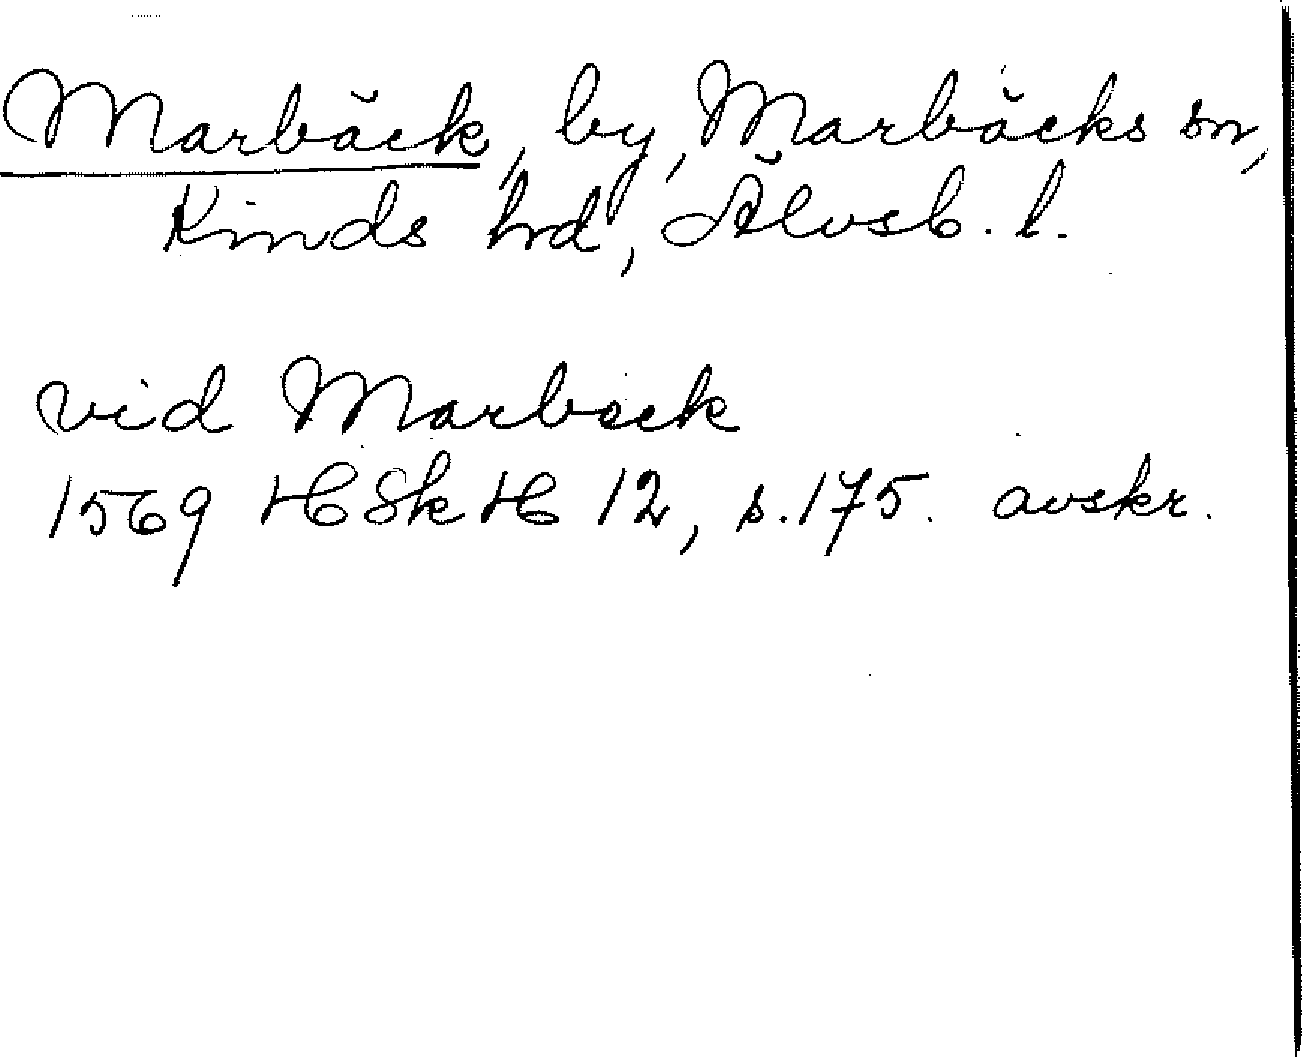 Marbäck, by, Marbäcks sn,
Kinds hrd, Älvsb. l.
vid Marbeck
1569 HSkH 12, s. 175. avskr.